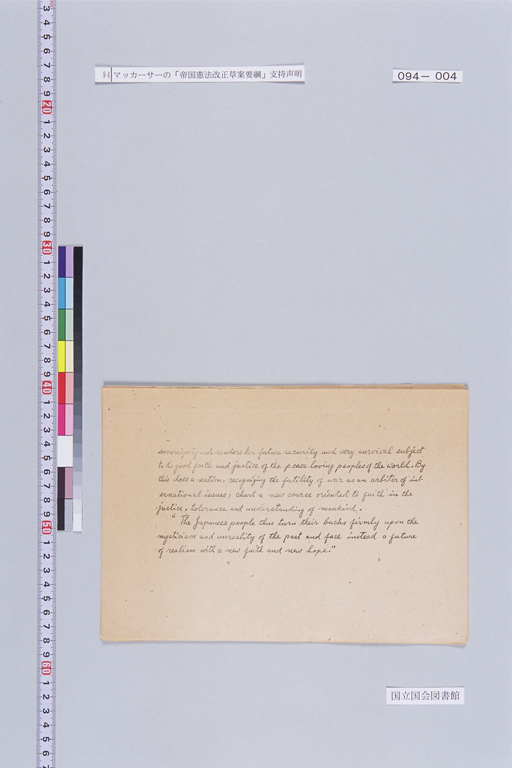 94 マッカーサーの「帝国憲法改正草案要綱」支持声明
094－004
sovereignty and renders her future security and very survival subject
to the good faith and justice of the peace loving peoples of the world. By
this does a nation, recognizing the futility of war as an arbiter of int
ernational issues, chart a new course oriented to faith in the
justice, tolerance and understanding of mankind.
"The Japanese people thus turn their backs firmly upon the
mysticism and unreality of the past and face instead a future
of realism with a new faith and new hope."
国立国会図書館